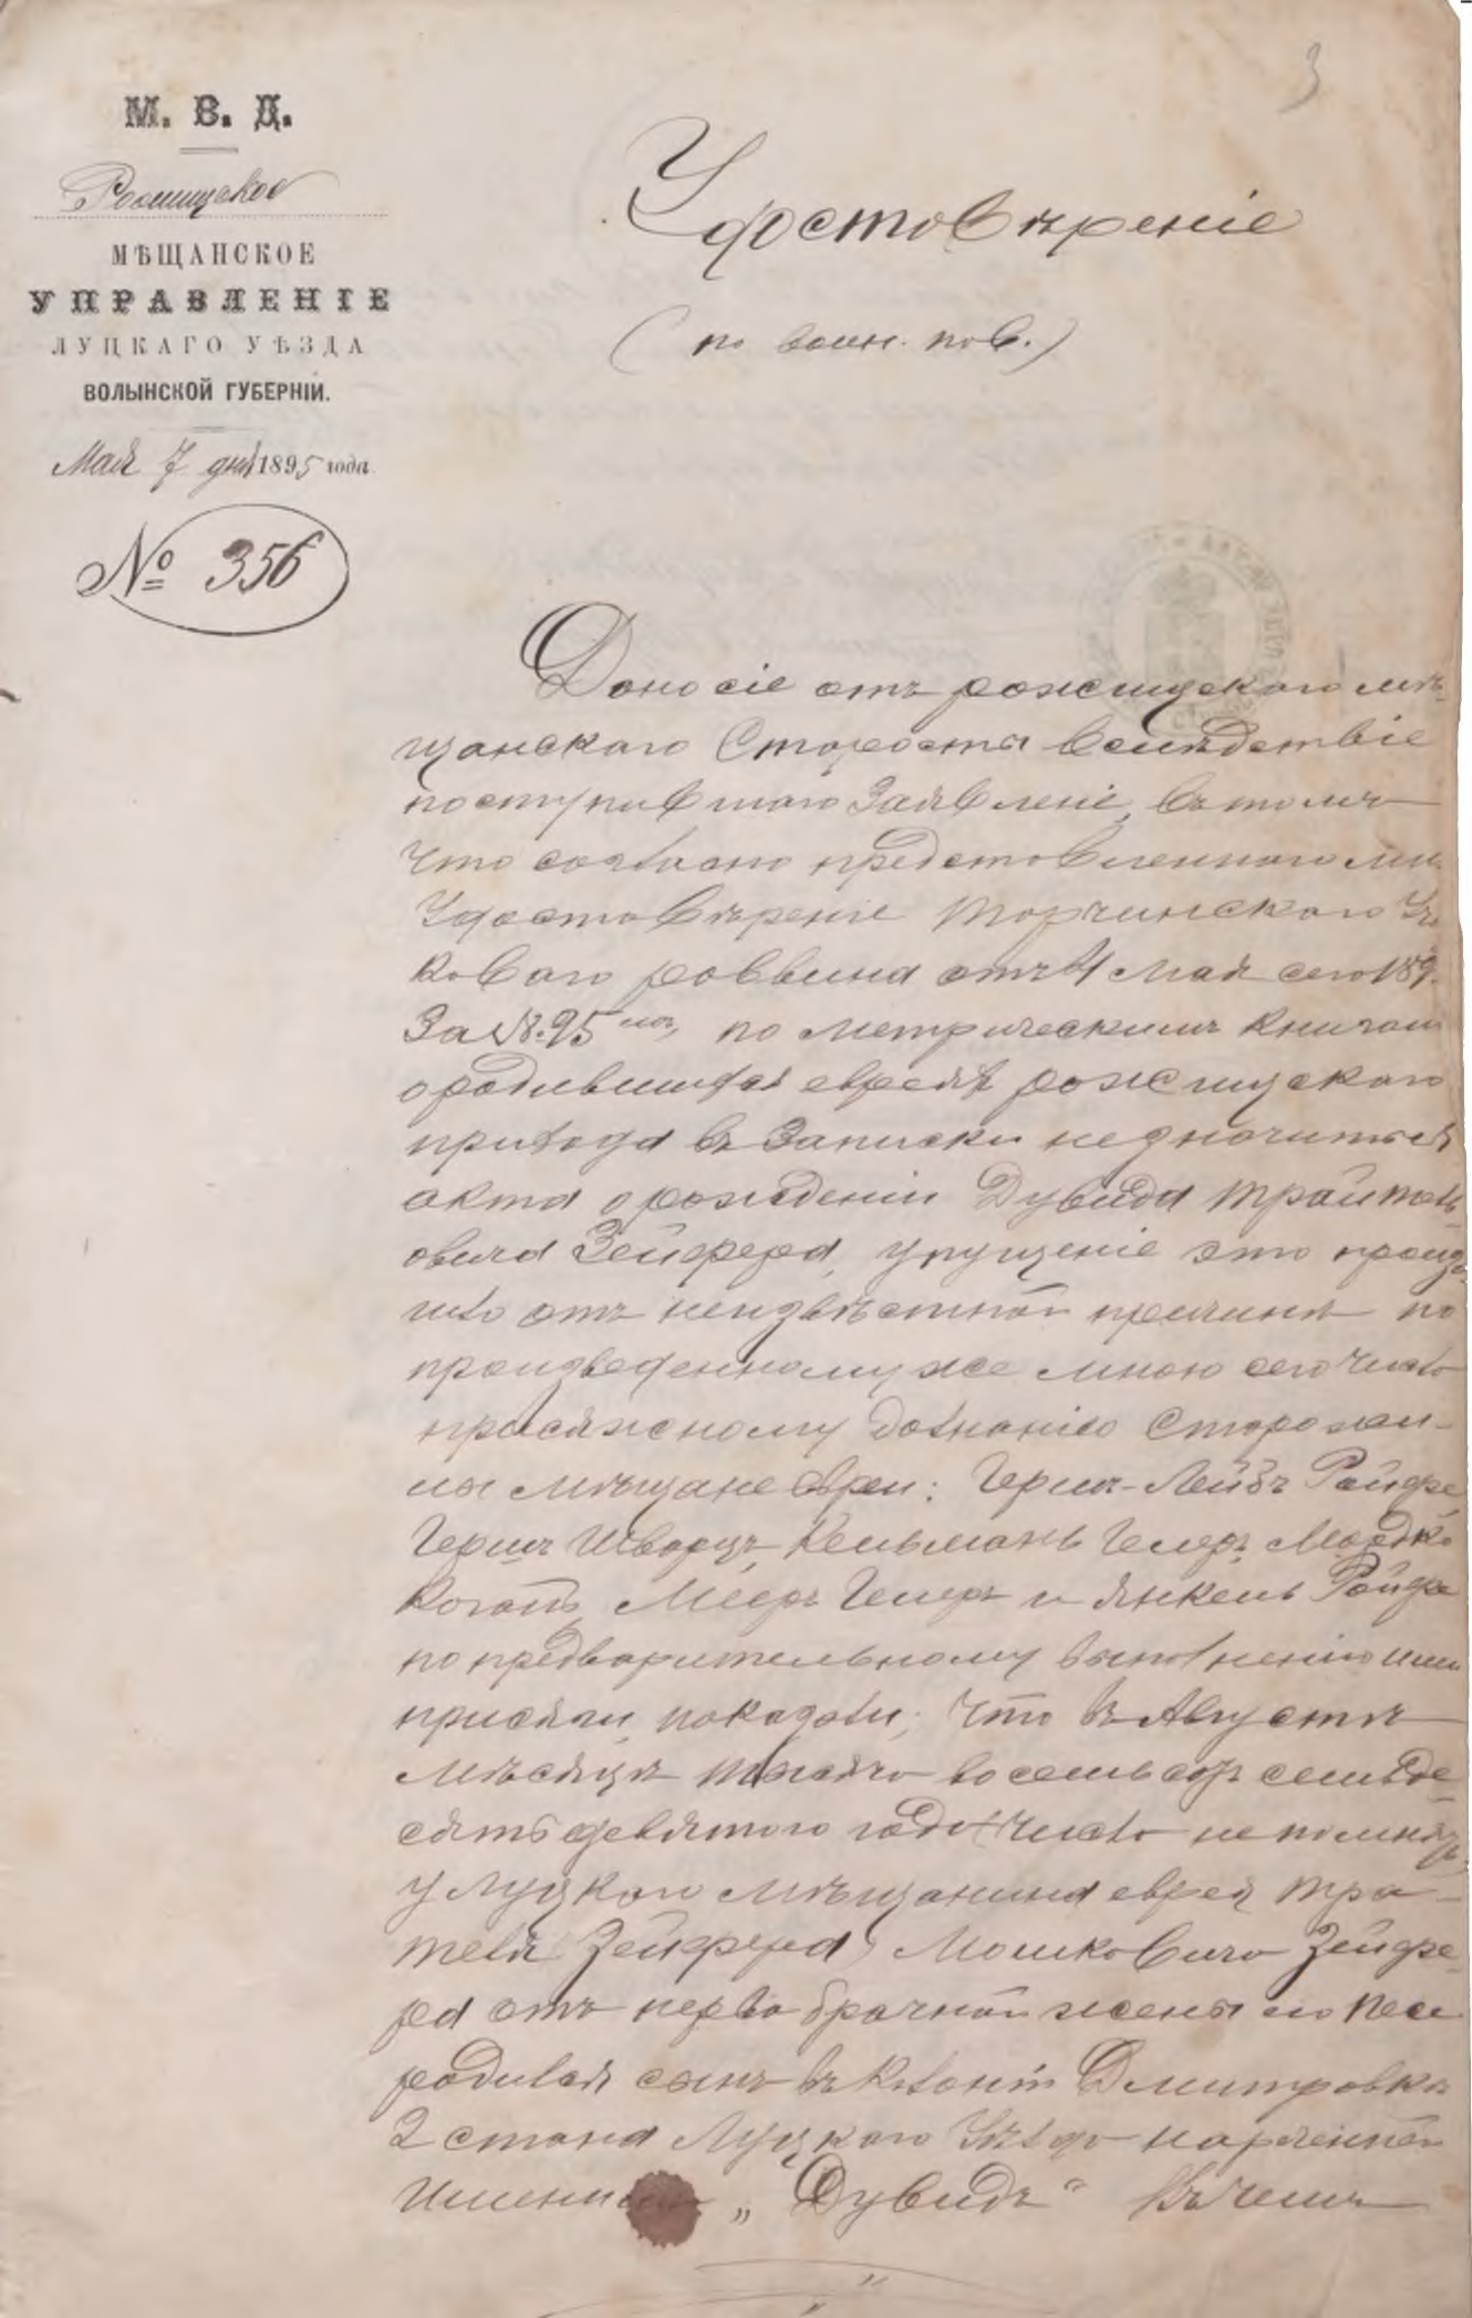 3
М. В. Д.
Рожищское
МѢЩАНСКОЕ
УПРАВЛЕНІЕ
ЛУЦКАГО УѢЗДА
ВОЛЫНСКОЙ ГУБЕРНІИ.
Мая 7 дня 1895 года
№ 356
Удостовѣреніе
(по воин. пов.)
Дано сіе отъ рожищскаго мѣ-
щанскаго Старосты вслѣдствіе
поступившаго Заявленіе, въ томъ
что согласно представленнаго мнѣ
Удостовѣреніе Торчинскаго
коваго раввина отъ 4 Мая сего 189
За № 95 по метрическимъ книгам
о родившихся еврея рожищскаго
прихода въ записки не значиться
акта о рожденіи Дувида Трайтель
овича Зейферда, упущеніе это произ
шло отъ неизвѣстной причины по
произведенному же мною сего числа
присяжному дознанію Старожи-
лы мѣщане евреи: Герш-Лейбъ Райфе
Гершъ Шварцъ, Кельманъ Гелеръ, Мордко
Коганъ, Мееръ Гелеръ и Янкель Райфе
по предварительному выполненію ими
присяги, показали; что въ Августѣ
мѣсяцѣ тысяча восемьсотъ семьде-
сятъ девятого года числа не помнятъ
у Луцкаго мѣщанина еврея Тра-
теля Зейферда Мошковича Зейфе-
рда отъ первобрачной жены его Песи
родился сынъ въ колоніи Дмитровка
2 стана Луцкаго Уѣзда нареченной
именемъ „Дувидъ“ Въ чемъ